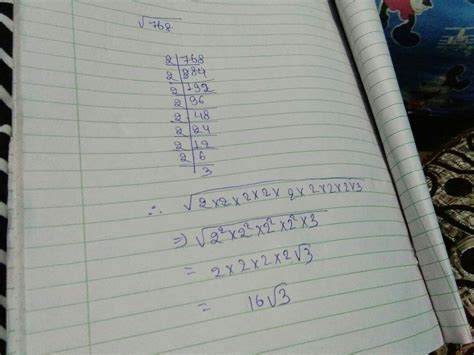 √768
2 | 768
2 | 384
2 | 192
2 | 96
2 | 48
2 | 24
2 | 12
2 | 6
3
∴ √2×2×2×2×2×2×2×2×3
⇒ √2²×2²×2²×2²×3
= 2×2×2×2√3
= 16√3